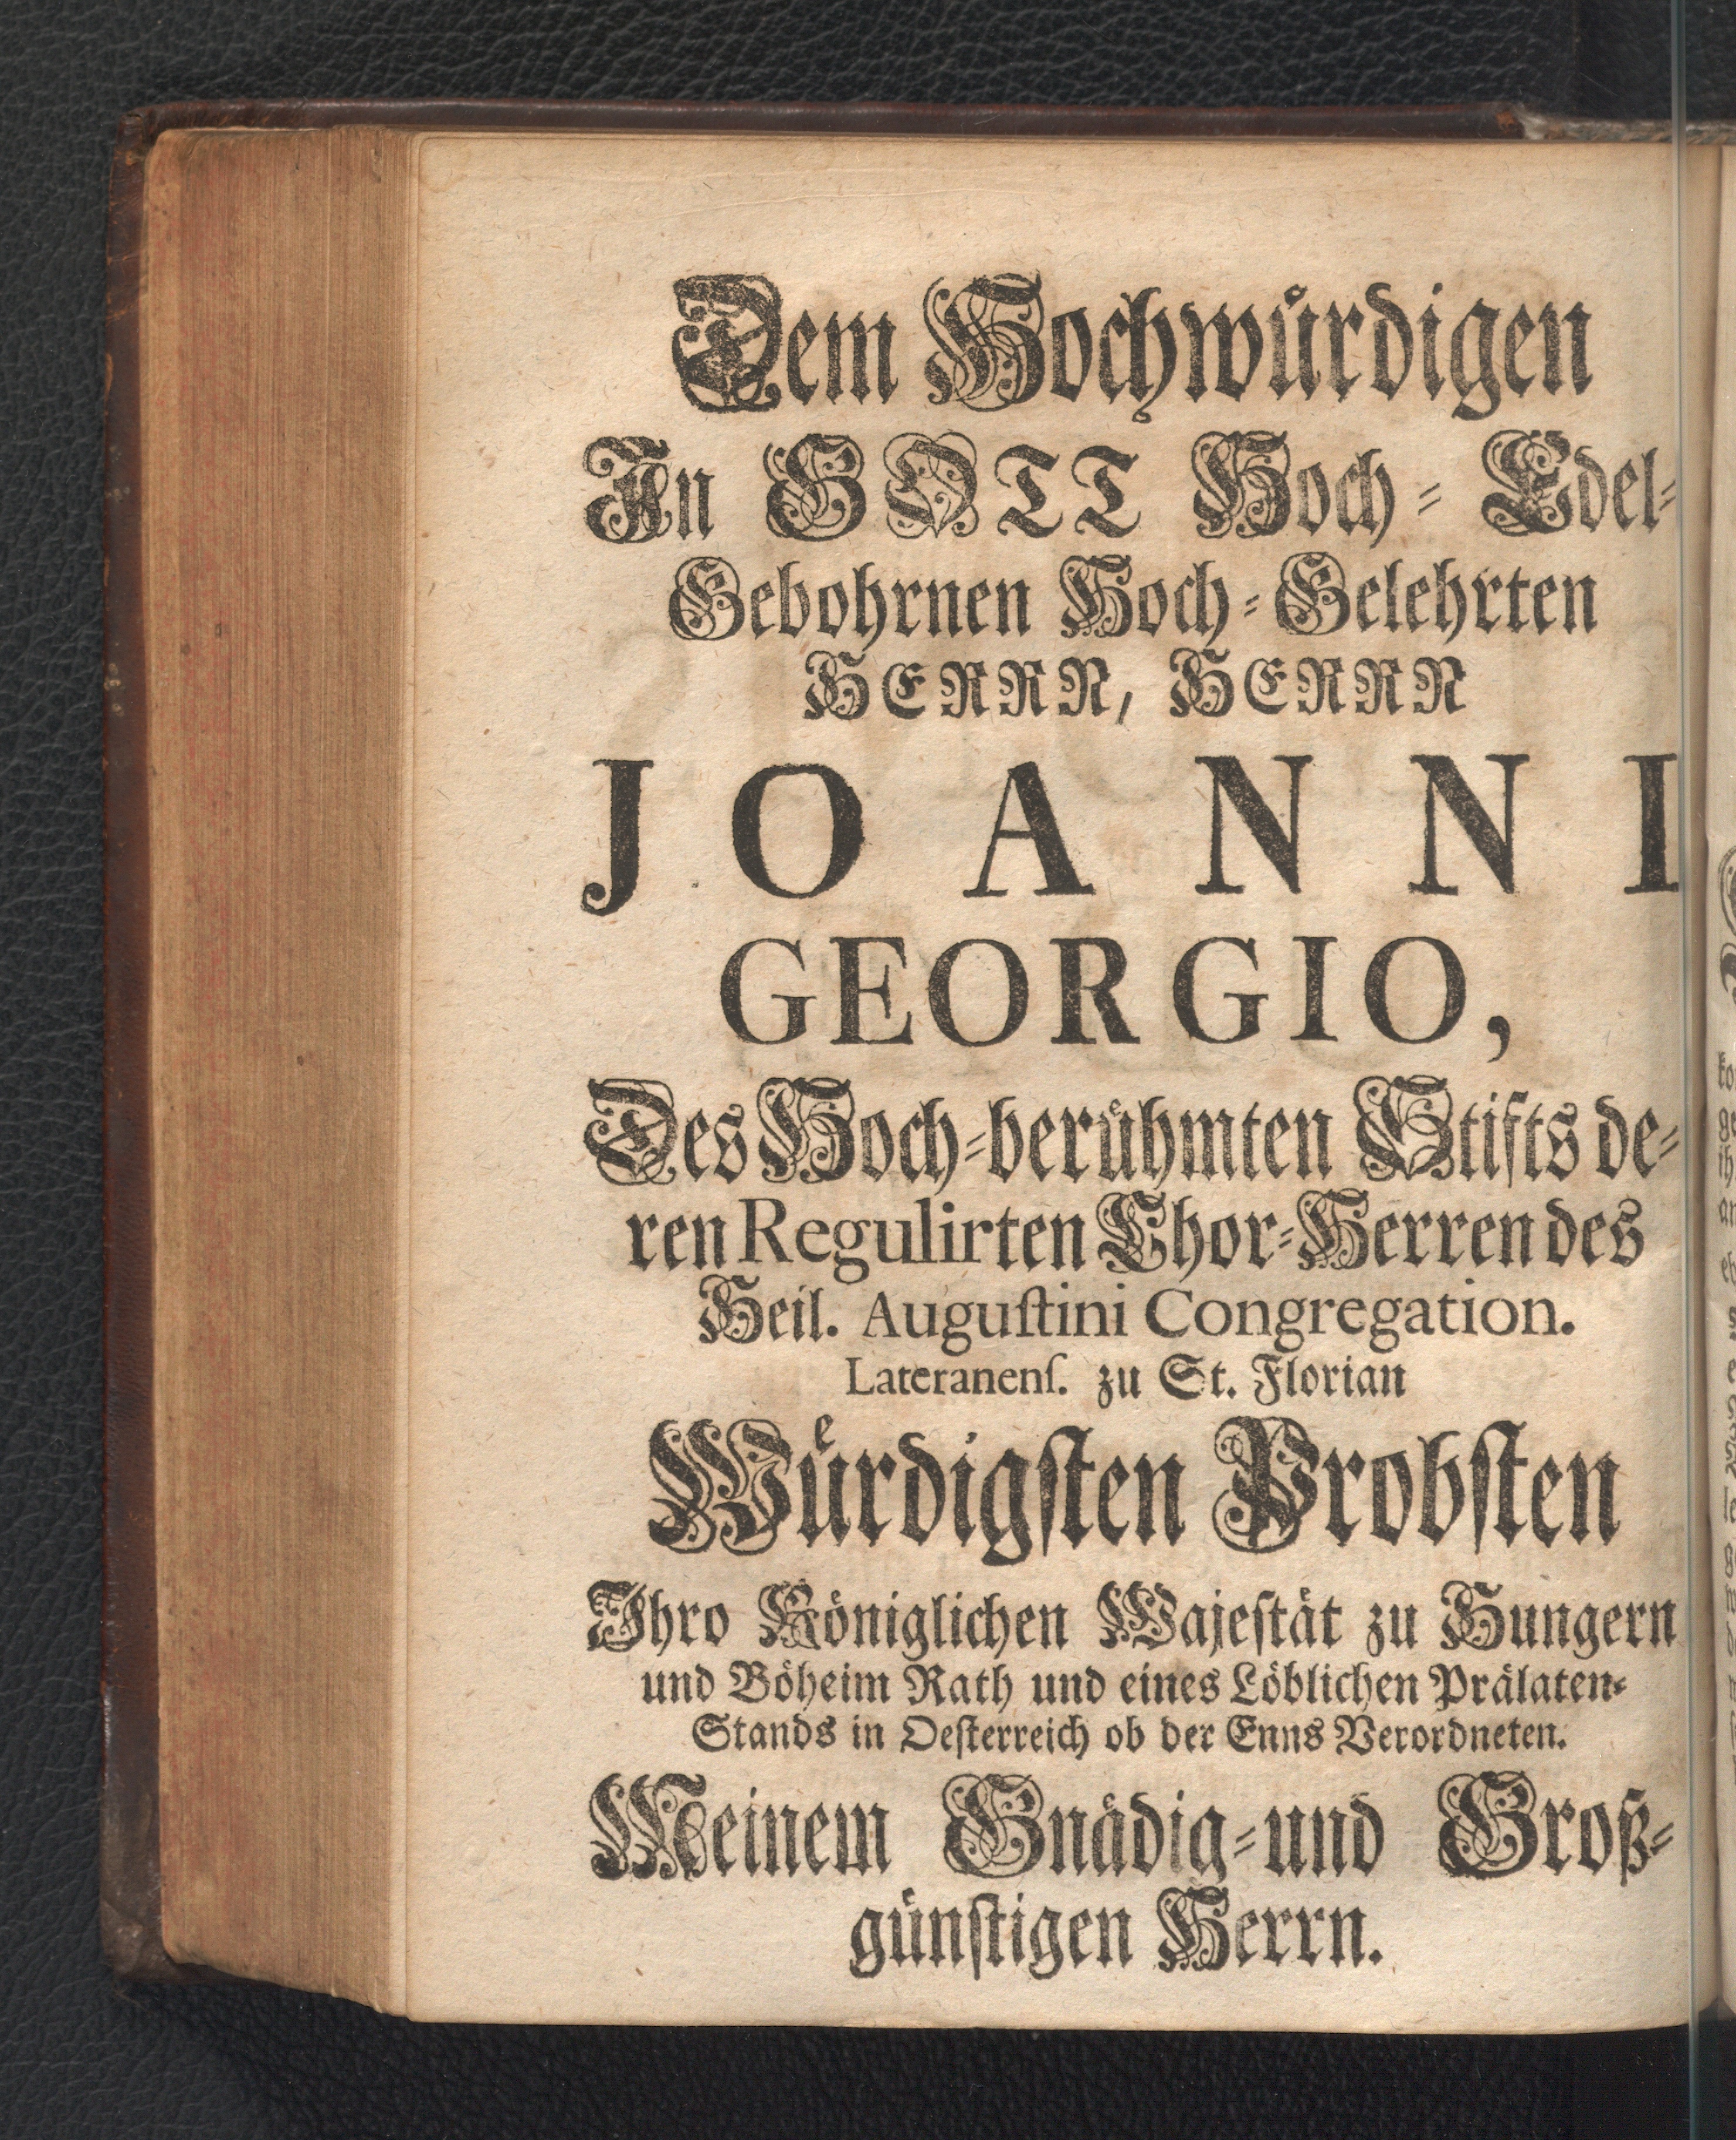 Dem Hochwürdigen
In GOTT Hoch-Edel-
Gebohrnen Hoch-Gelehrten
HERRN, HERRN
JOANNI
GEORGIO,
Des Hoch-berühmten Stifts de-
ren Regulirten Chor-Herren des
Heil. Auguſtini Congregation.
Lateranenſ. zu St. Florian
Würdigſten Probſten
Ihro Königlichen Majeſtät zu Hungern
und Böheim Rath und eines Löblichen Prälaten-
Stands in Oeſterreich ob der Enns Verordneten.
Meinem Gnädig-und Groß-
günſtigen Herrn.